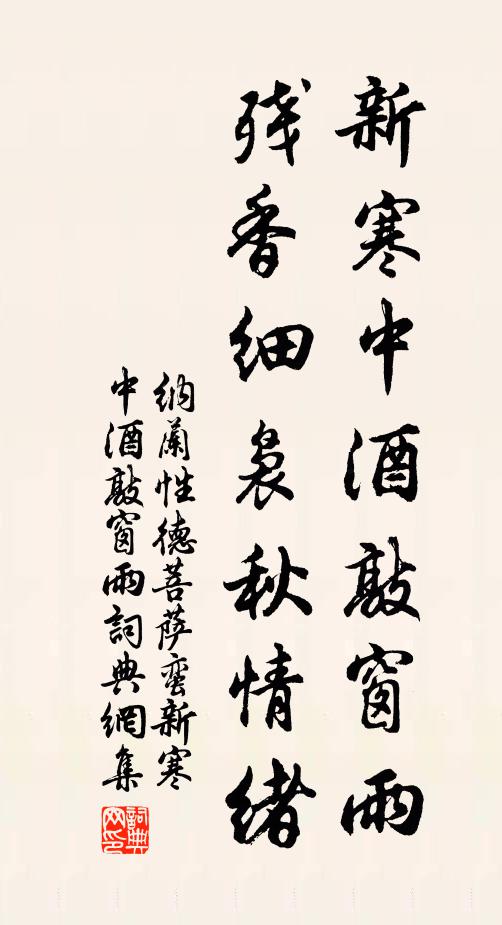 新寒中酒敲窗雨
残香细袅秋情绪
纳兰性德菩萨蛮新寒
中酒敲窗雨词典網集
詞典
网印